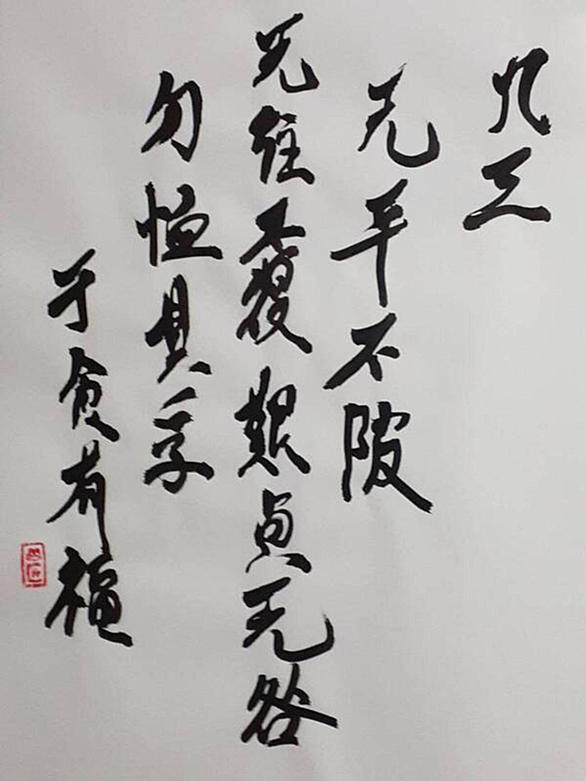 九三
无平不陂
无往不復艱貞无咎
勿恤其孚
于食有福